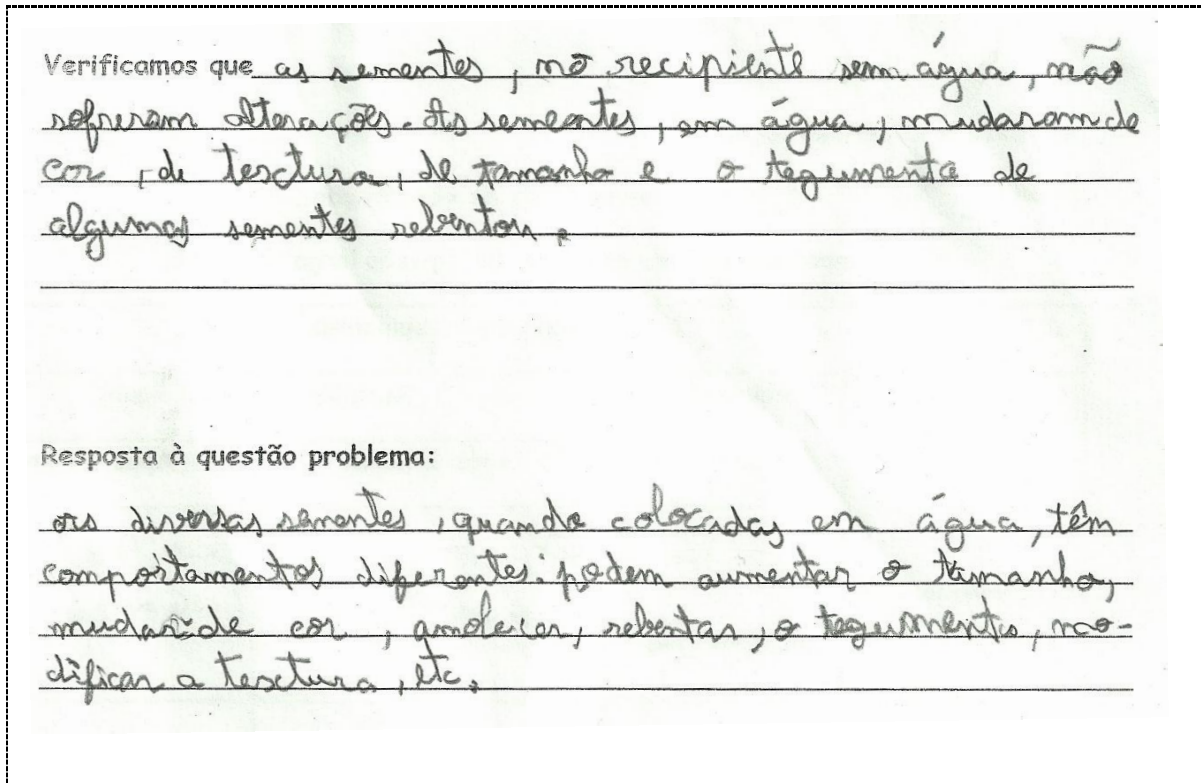 Verificamos que as sementes, no recipiente sem água, não
sofreram alterações. As sementes, em água, mudaram de
cor, de textura, de tamanho e o tegumento de
algumas sementes rebentou.
Resposta à questão problema:
as diversas sementes, quando colocadas em água, têm
comportamentos diferentes: podem aumentar o tamanho,
mudar de cor, amolecer, rebentar, o tegumento, mo-
dificar a textura, etc.